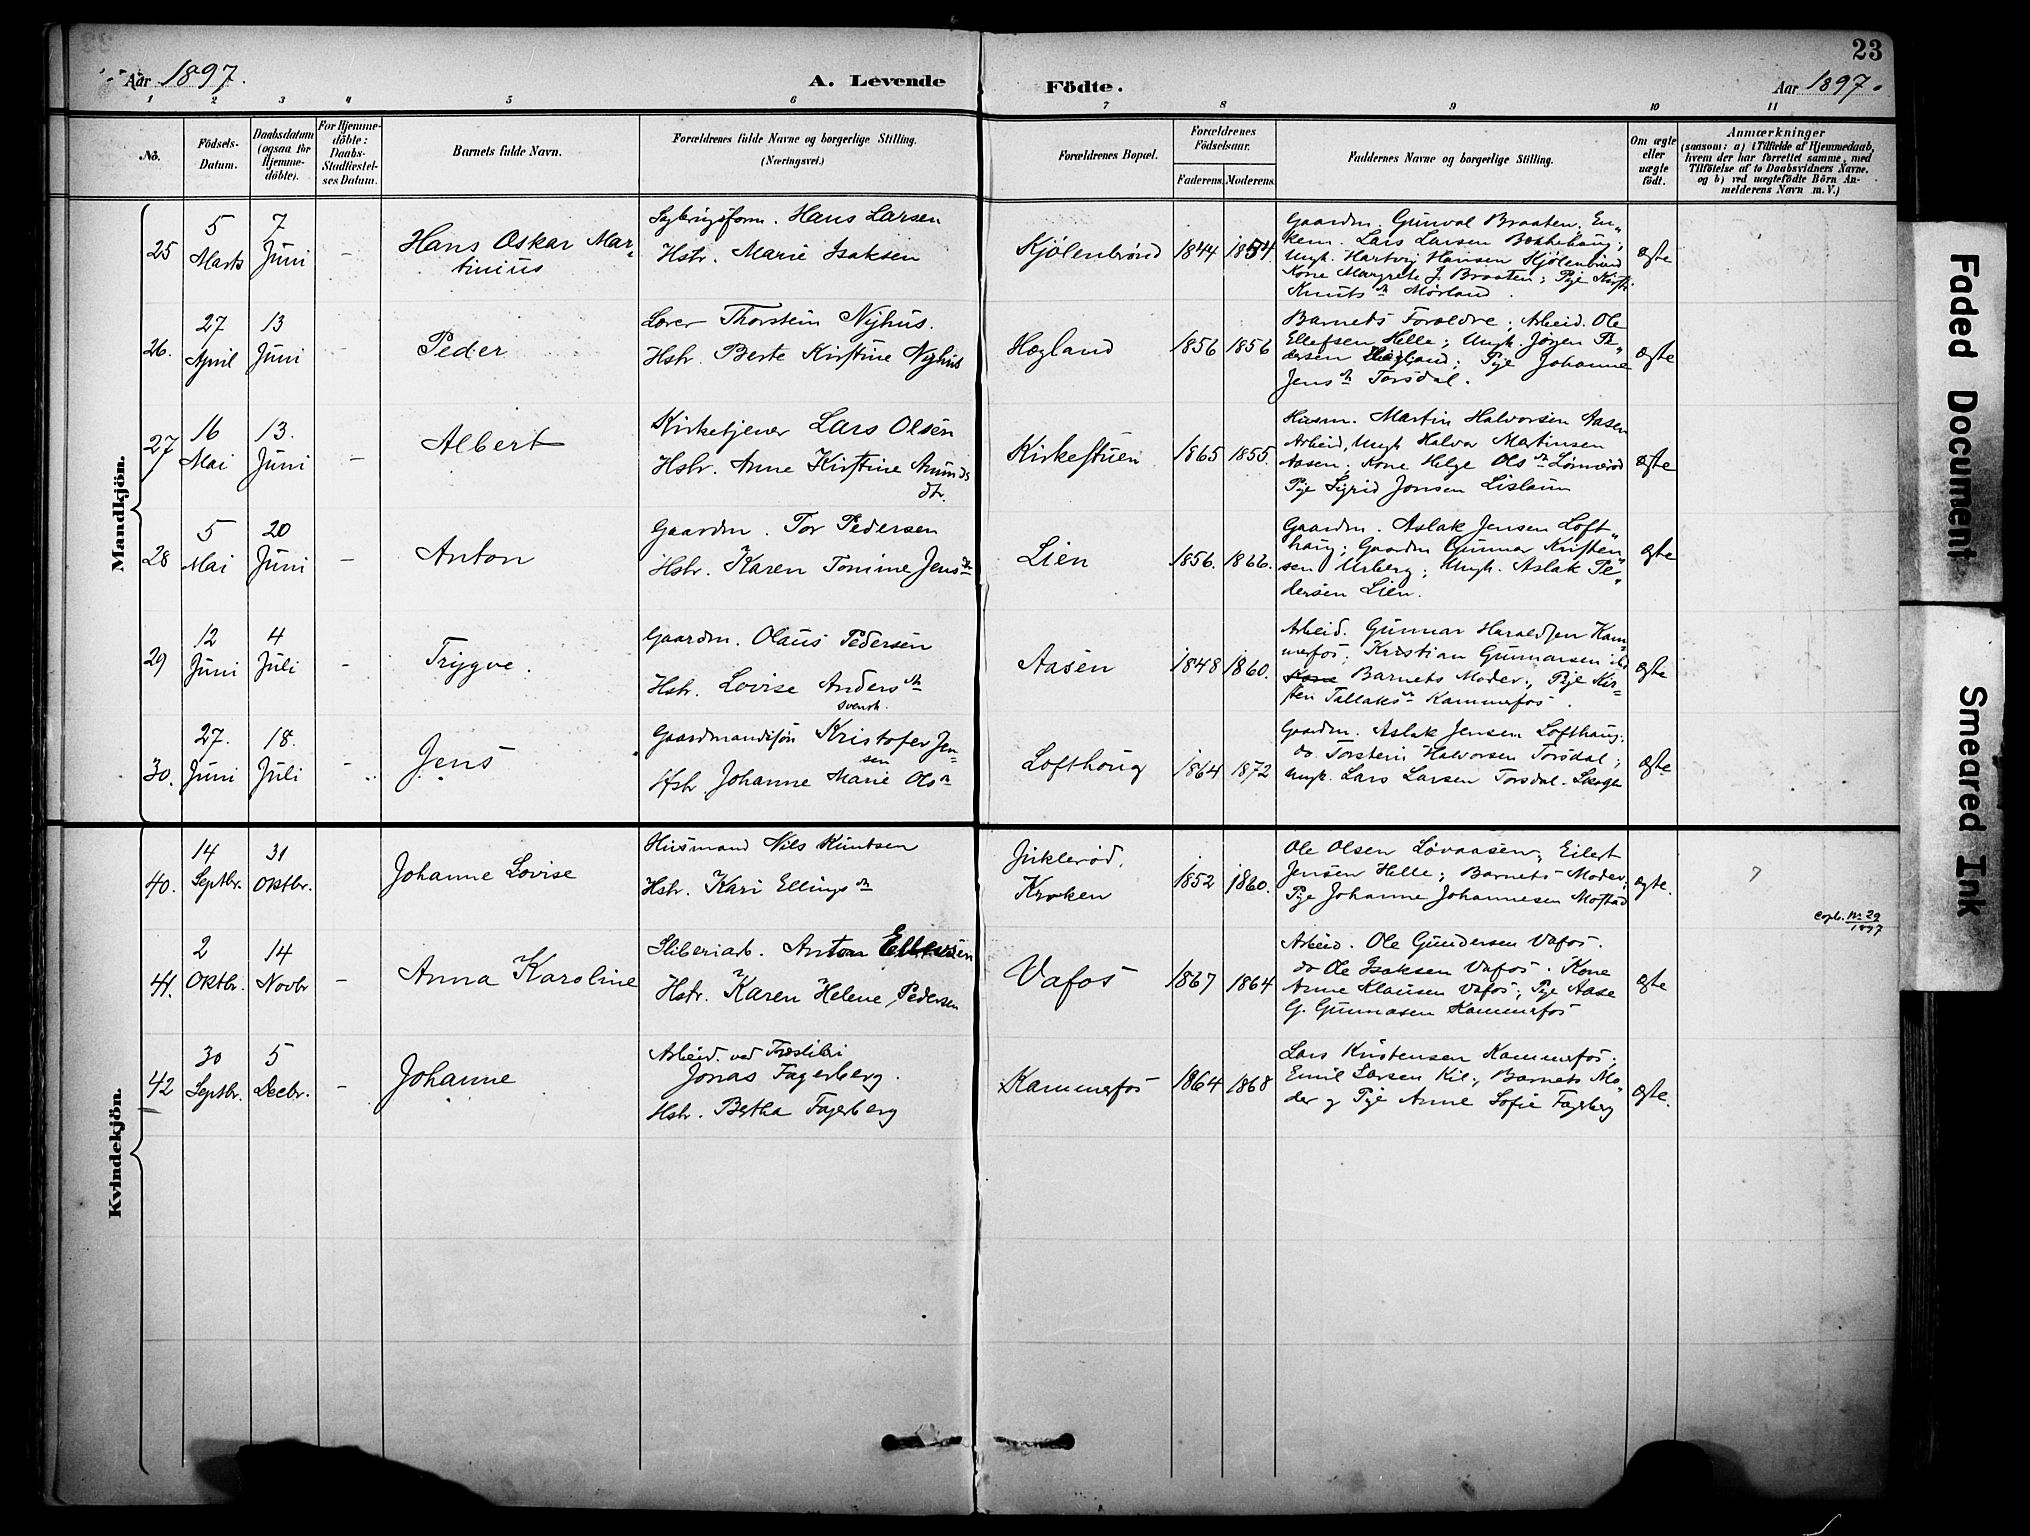 23
Aar 1897.
A. Levende
Födte.
Aar 1897.
1 2 3 4 5 6 7 8 9 10 11
No.
Födsels-Datum.
Daabsdatum (ogsaa for Hjemme-döbte).
For Hjemme-döbte: Daabs-Stadfæstel-ses Datum.
Barnets fulde Navn.
Forældrenes fulde Navne og borgerlige Stilling. (Næringsvei.)
Forældrenes Bopæl.
Forældrenes Födselsaar.
Faderens. Moderens.
Faddernes Navne og borgerlige Stilling.
Om ægte eller uægte födt.
Anmærkninger
(saasom: a) i Tilfælde af Hjemmedaab,
hvem der har forrettet samme, med
Tilföielse af to Daabsvidners Navne.
og b) ved uægtefödte Börn An-
melderens Navn m. V.)
Mandkjön.
25
5 Marts
7 Juni
-
Hans Oskar Mar-
tinius
Hans Larsen
Hstr. Marie Isaksen
Kjölenbrönd
1844 1854
Gaardm. Gunval Braaten; En-
kem. Lars Larsen
Ungk. Hartvig Hansen Kjölenbrönd
Kone Margrete J. Braaten; Pige
Knuts dr. Mörland.
ægte
26.
27 April
13 Juni
Peder
Lærer Thorstein Nyhus.
Hstr. Berte Kirstine Nyhus
Hægland
1856 1856
Barnets Forældre; Arbeid. Ole
Ellefsen Helle; Ungk. Jörgen Pe-
dersen Hægland; Pige Johanne
Jens dr. Torsdal.
ægte
27
16 Mai
13. Juni
-
Albert
Kirketjener Lars Olsen
Hstr. Anne Kirstine Amunds
dtr.
Kirkestuen
1865 1855.
Husm. Martin Halvorsen Aasen
Arbeid, Ungk Halvor Martinsen
Aasen; Kone Helge Ols dr.
Pige Sigrid Jonsen Lislaun
ægte
28
5 Mai
20 Juni
-
Anton
Gaardm. Tor Pedersen
Hstr. Karen Tomine Jens dr.
Lien
1856. 1866.
Gaardm. Aslak Jensen Loft-
haug; Gaardm Gunnar Kristen-
sen Urberg; Ungk. Aslak Pe-
dersen Lien.
ægte
29
12 Juni
4 Juli
-
Trygve.
Gaardm. Olaus Pedersen
Hstr. Lovise Anders dr.
svensk.
Aasen
1848 1860.
Arbeid. Gunnar Haraldsen Kam-
merfos; Kristian Gunnarsen ibd
Kone Barnets Moder; Pige Kir-
sten Tallaks dr Kammerfos.
ægte
30.
27. Juni
18. Juli
-
Jens
Gaardmandssön Kristofer Jen-
sen
Hstr. Johanne Marie Ols dr
Lofthoug
1864 1872
Gaardm. Aslak Jensen Lofthaug.
do. Torstein Halvorsen Torsdal;
Ungk. Lars Larsen Torsdal. Skogen
ægte
Kvindekjön.
40.
14 Septbr.
31 Oktbr.
Johanne Lovise
Husmand Nils Knutsen
Hstr. Kari Ellings dr
Jirklerød.
Kroken
1852 1860.
Ole Olsen Lövaasen; Eilert
Jensen Helle; Barnets Moder;
Pige Johanne Johannesen Mostad
ægte.
7
41.
2 Oktbr.
14 Novbr
-
Anna Karoline
Sliberiarb. Anton Ellefsen
Hstr. Karen Helene Pedersen
Vafos
1867 1864
Arbeid. Ole Gundersen Vafos.
do Ole Isaksen Vafos. Kone
Anne Klausen Vafos; Pige Aase
G. Gunnasen Kammerfos
ægte
Copb. No 29
1897
42
30 Septbr.
5 Decbr.
-
Johanne
Arbeid. ved Træsliberi
Jonas Fagerberg.
Hstr. Bertha Fagerberg
Kammerfos
1864 1868
Lars Kristensen Kammerfos;
Emil Larsen Kil; Barnets Mo-
der og Pige Anne Sofie Fagerberg
ægte.
Faded Document
Smeared Ink